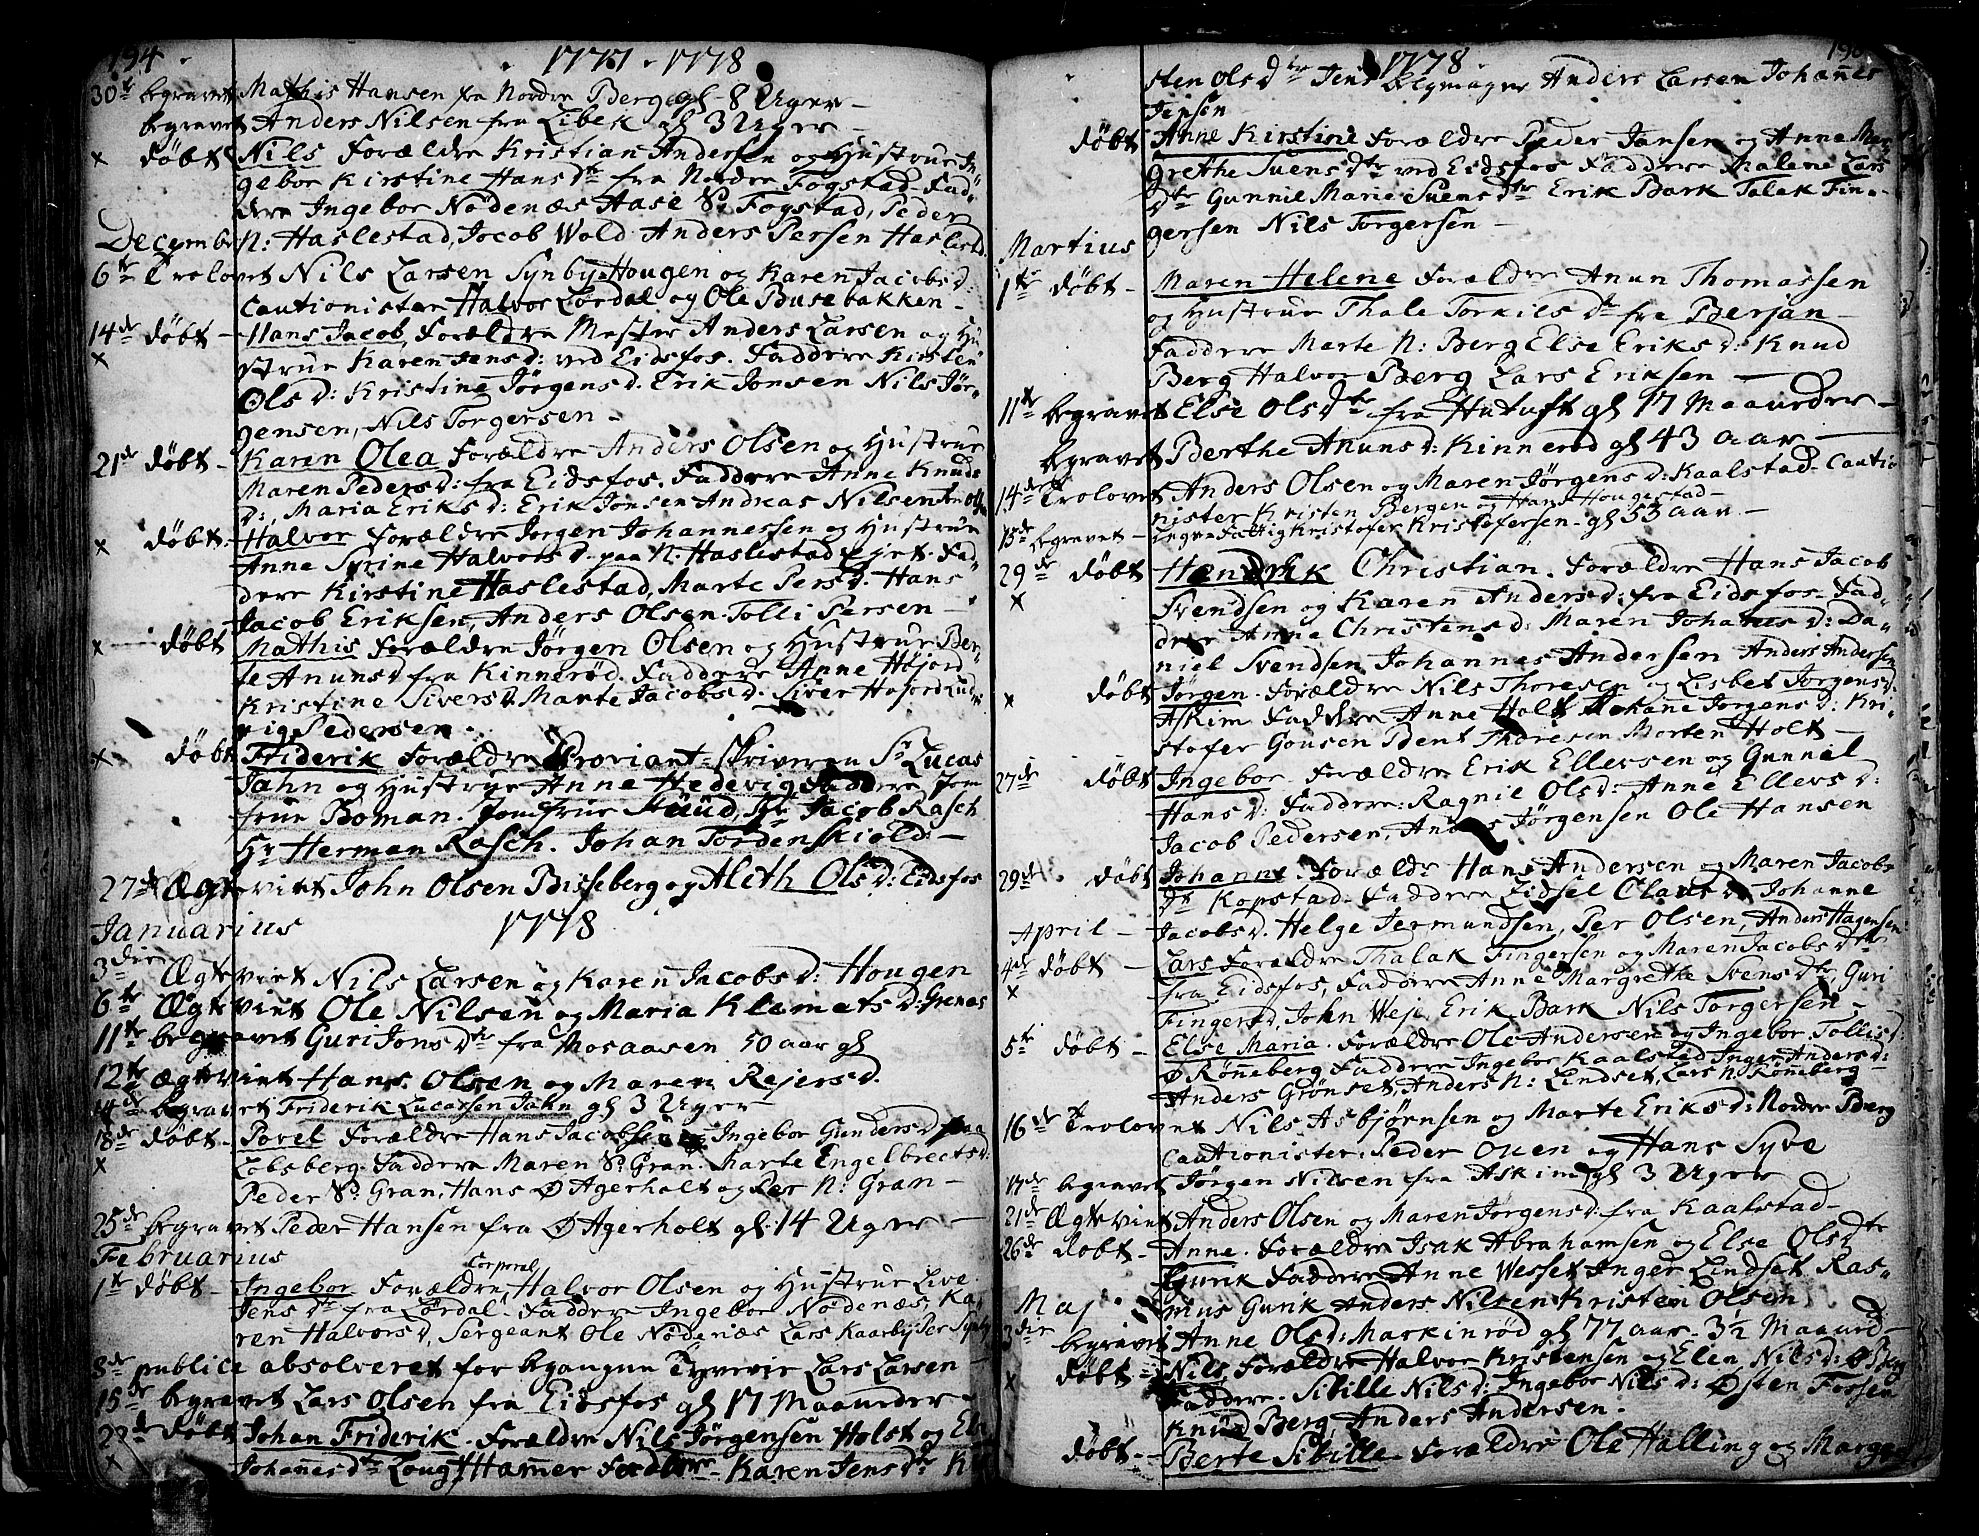 194. 1777. 1778
30te begravet Mathis Hansen fra Nordre Berge gl 8 Uger
begravet Anders Nilsen fra Libek gl 3 Uger
x døbt Nils Forældre Kristian Andersen og Hustrue In-
gebor Kirstine Hansdtr fra Nordre Fogstad. Fad-
dere Ingebor Nødenæs Aase S: Fogstad, Peder
December N: Haslestad, Jocob Wold. Anders Persen Haslestd
6te Trolovet Nils Larsen Synby-Hougen og Karen Jacobsd:
Cautionister Halvor Lørdal og Ole Busebakken
14de døbt Hans Jacob, Forældre Mester Anders Larsen og Hu
x strue Karen Jensd: ved Eidsfos. Faddere Kirsten
Olsd: Kristine Jørgensd. Erik Jonsen Nils Jør-
gensen, Nils Torgersen
21de døbt Karen Olea Forældre Anders Olsen og Hustrue
Maren Pedersd: fra Eidsfos. Faddere Anne Knuds
D: Maria Eriksd: Erik Jonsen Andreas Nilsen
x døbt Halvor Forældre Jørgen Johannessen og Hustrue
Anne Sirine Halvorsd. paa N: Haslestad Ejet. Fad-
dere Kirstine Haslestad, Marte Persd. Hans
Jacob Eriksen, Anders Olsen. Tolli Persen
x døbt Mathis Forældre Jørgen Olsen og Hustrue Ber-
te Anunsd fra Kinnerød. Faddere Anne Hojord
Kristine Siversd. Marte Jacobsd. Siver Hojord Lud-
vig Pedersen
x døbt Friderik Forældre Proviant-Skriveren Sr Lucas
Jahn og Hustrue Anne Hedevig Faddere Jom
frue Boman. Jomfrue Fuud, Sr Jacob Rasch
Hr Herman Rasch. Johan Tordenskiold
27de Ægteviet John Olsen Bisseberg og Aleth Olsd: Eidsfos
Januarius 1778
3die Ægteviet Nils Larsen og Karen Jacobsd: Hougen
6te Ægteviet Ole Nilsen og Maria Klemetsd: Grenas
11te begravet Guri Jonsdtr fra Mosaasen 50 aar gl
12te Ægteviet Hans Olsen og Maren Rejersd.
14de begravet Friderik Lucassen Jahn gl 3 Uger
18de døbt Povel Forældre Hans Jacobsen og Ingebor Gundersd paa
x Løbsberg. Faddere Maren S: Gran. Marte Engelbrectsd.
Peder S: Gran, Hans Ø Agerholt og Per N: Gran
25de begravet Peder Hansen fra Ø Agerholt gl. 14 Uger
Februarius
1te døbt Ingebor Forældre Corporal Halvor Olsen og Hustrue Live
Jensdtr fra Lørdal. Faddere Ingebor Nødenæs, Ka-
ren Halvorsd, Sergeant Ole Nødenæs Lars Kaarby Per Synby
8de publice absolveret for begangne Tyverie Lars Larsen
15de begravet Lars Olsen fra Eidsfos gl 17 Maaneder
22de døbt Johan Friderik. Forældre Nils Jørgensen Holst og
x Johannesdtr Hamer Faddere Karen Jensdtr
1778.
sten Olsdtr Jens Anders Larsen Johannes
Jensen
døbt Anne Kirstine Forældre Peder Jansen og Anne Mar
grethe Suensdtr ved Eidsfos Faddere Malene Lars
Dtr Gunnil Marie Suensdtr Erik Bark Talak Fin-
gersen Nils Torgersen
Martius
1te døbt Maren Helene Forældre Anun Thomassen
og Hustrue Thale Torkilsdtr fra Berjan
Faddere Marte N: Berg Else Eriksd: Knud
Berg Halvor Berg Lars Eriksen
11te begravet Else Olsdtr fra Hutuft gl 17 Maaneder
begravet Berthe Anunsd: Kinnerød gl 43 aar
14de Trolovet Anders Olsen og Maren Jørgensd: Kaalstad. Cautio
nister Kristen Bergen og Hans Hougestad
15de begravet Fattig Kristofer Kristofersen gl 53 aar
29de døbt Hendrik Christian. Forældre Hans Jacob
x Svendsen og Karen Andersd: fra Eidsfos. Fad-
dere Anne Christensd: Maren Johanisd: Da-
niel Svendsen Johannes Andersen Anders Andersen
x døbt Jørgen. Forældre Nils Thoresen og Lisbet Jørgensd:
Askim Faddere Anne Holt Johane Jørgensd: Kri-
stofer Gousen Bent Thoresen Morten Holt
27de døbt Ingebor. Forældre Erik Ellersen og Gunnil
Hansd: Faddere: Ragnil Olsd: Anne Ellersd:
Jacob Pedersen, Anders Jørgensen Ole Hansen
29de døbt Johanne. Forældre Hans Andersen og Maren Jacobs
Dtr Kopstad. Faddere Zidsel Johanne
April Jacobsd. Helge Jermundsen, Per Olsen, Anders Hagensen
4de døbt Lars Forældre Thalak Fingersen og Maren Jacobsdtr
x fra Eidsfos, Faddere Anne Margrethe Svensdtr Guri
Fingersd, John Weje, Erik Bark Nils Torgersen
5te døbt Else Maria. Forældre Ole Andersen og Ingebor Tollisd:
Ø Rønneberg Faddere Ingebor Kaalstad Inger Andersd:
Anders Grønset, Anders N: Lindset, Lars N. Rønneberg
16de Trolovet Nils Asbjørnsen og Marte Eriksd: Nordre Berg
Cautionister: Peder Ouen og Hans Syve
17de begravet Jørgen Nilsen fra Askim gl 3 Uger
21de Ægteviet Anders Olsen og Maren Jørgensd: fra Kaalstad
26de døbt Anne. Forældre Isak Abrahamsen og Else Olsdtr
Gurik Faddere Anne Wesset Inger Lindset Ras-
Maj mus Gurik Anders Nilsen Kristen Olsen
3die begravet Anne Olsd: Markinrød gl 77 aar. 3½ Maaned
x døbt Nils, Forældre Halvor Kristensen og Elen Nilsd: Ø Berg
Faddere. Sibille Nilsd: Ingebor Nilsd: Østen Forsen
Knud Berg, Anders Andersen.
døbt Berte Sibille Forældre Ole Halling og